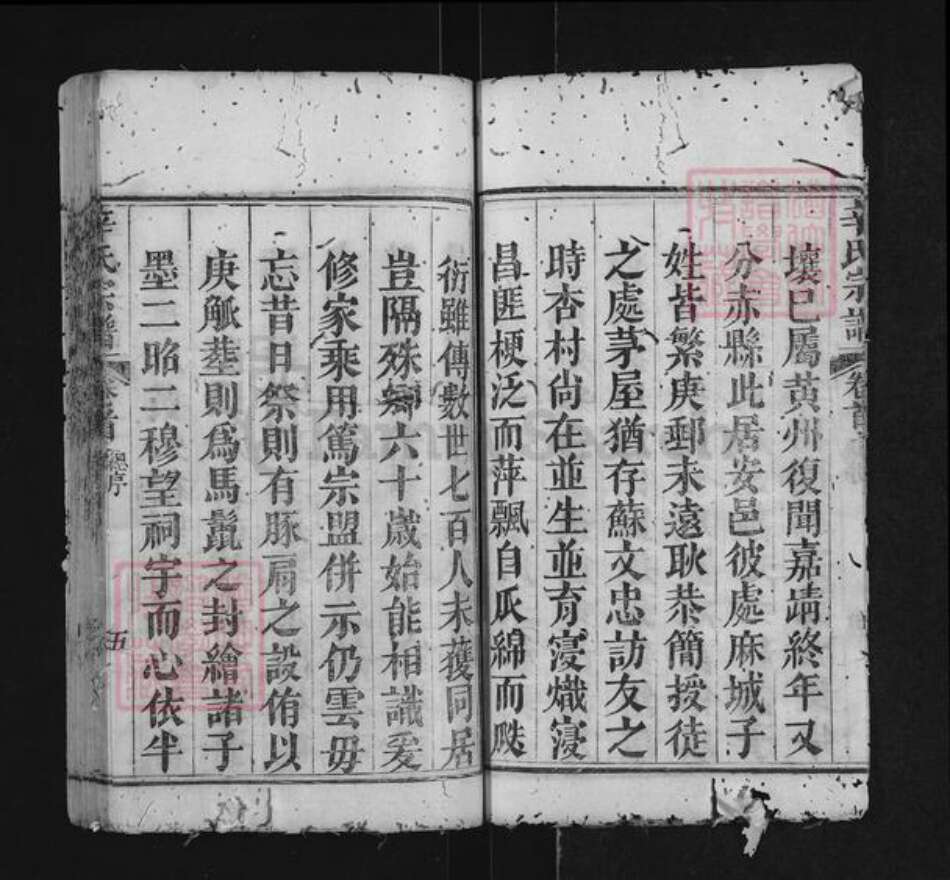 辛氏宗譜 卷首
壤已屬黃州復聞嘉靖終年又
分赤縣此居安邑彼處麻城子
姓皆繁庚郵未遠耿恭簡授徒
之處茅屋猶存蘇文忠訪友之
時杏村尙在並生並育寖熾寖
昌匪梗泛而萍飄自瓜綿而瓞
衍雖傳數世七百人未獲同居
豈隔殊鄉六十歲始能相識爰
修家乘用篤宗盟併示仍雲毋
忘昔日祭則有豚肩之設侑以
庚觚塟則爲馬鬛之封繪諸子
墨二昭二穆望祠宇而心依半
辛氏宗譜 卷首 總序 五